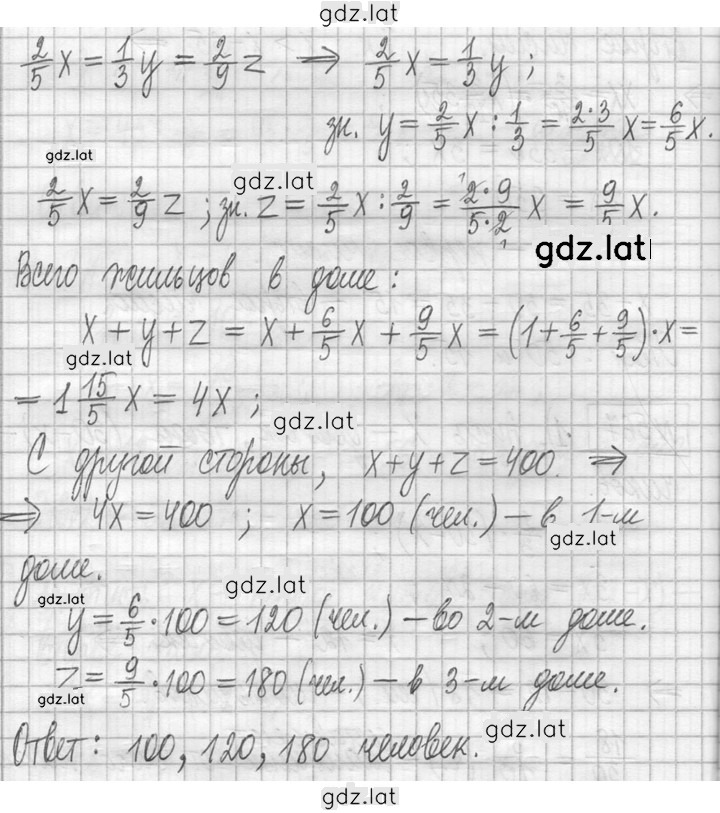 gdz.lat
2/5 x = 1/3 y = 2/9 z ⇒ 2/5 x = 1/3 y ;
зн. y = 2/5 x : 1/3 = 2·3/5 x = 6/5 x.
gdz.lat
gdz.lat
2/5 x = 2/9 z ; зн. z = 2/5 x : 2/9 = 2·9/5·2 x = 9/5 x.
1
1
gdz.lat
Всего жильцов в доме:
x + y + z = x + 6/5 x + 9/5 x = (1 + 6/5 + 9/5) · x =
gdz.lat
= 1 15/5 x = 4x ;
gdz.lat
С другой стороны, x + y + z = 400. ⇒
⇒ 4x = 400 ; x = 100 (чел.) – в 1-м
gdz.lat
доме.
gdz.lat
gdz.lat
y = 6/5 · 100 = 120 (чел.) – во 2-м доме.
z = 9/5 · 100 = 180 (чел.) – в 3-м доме.
gdz.lat
Ответ: 100, 120, 180 человек.
gdz.lat
gdz.lat